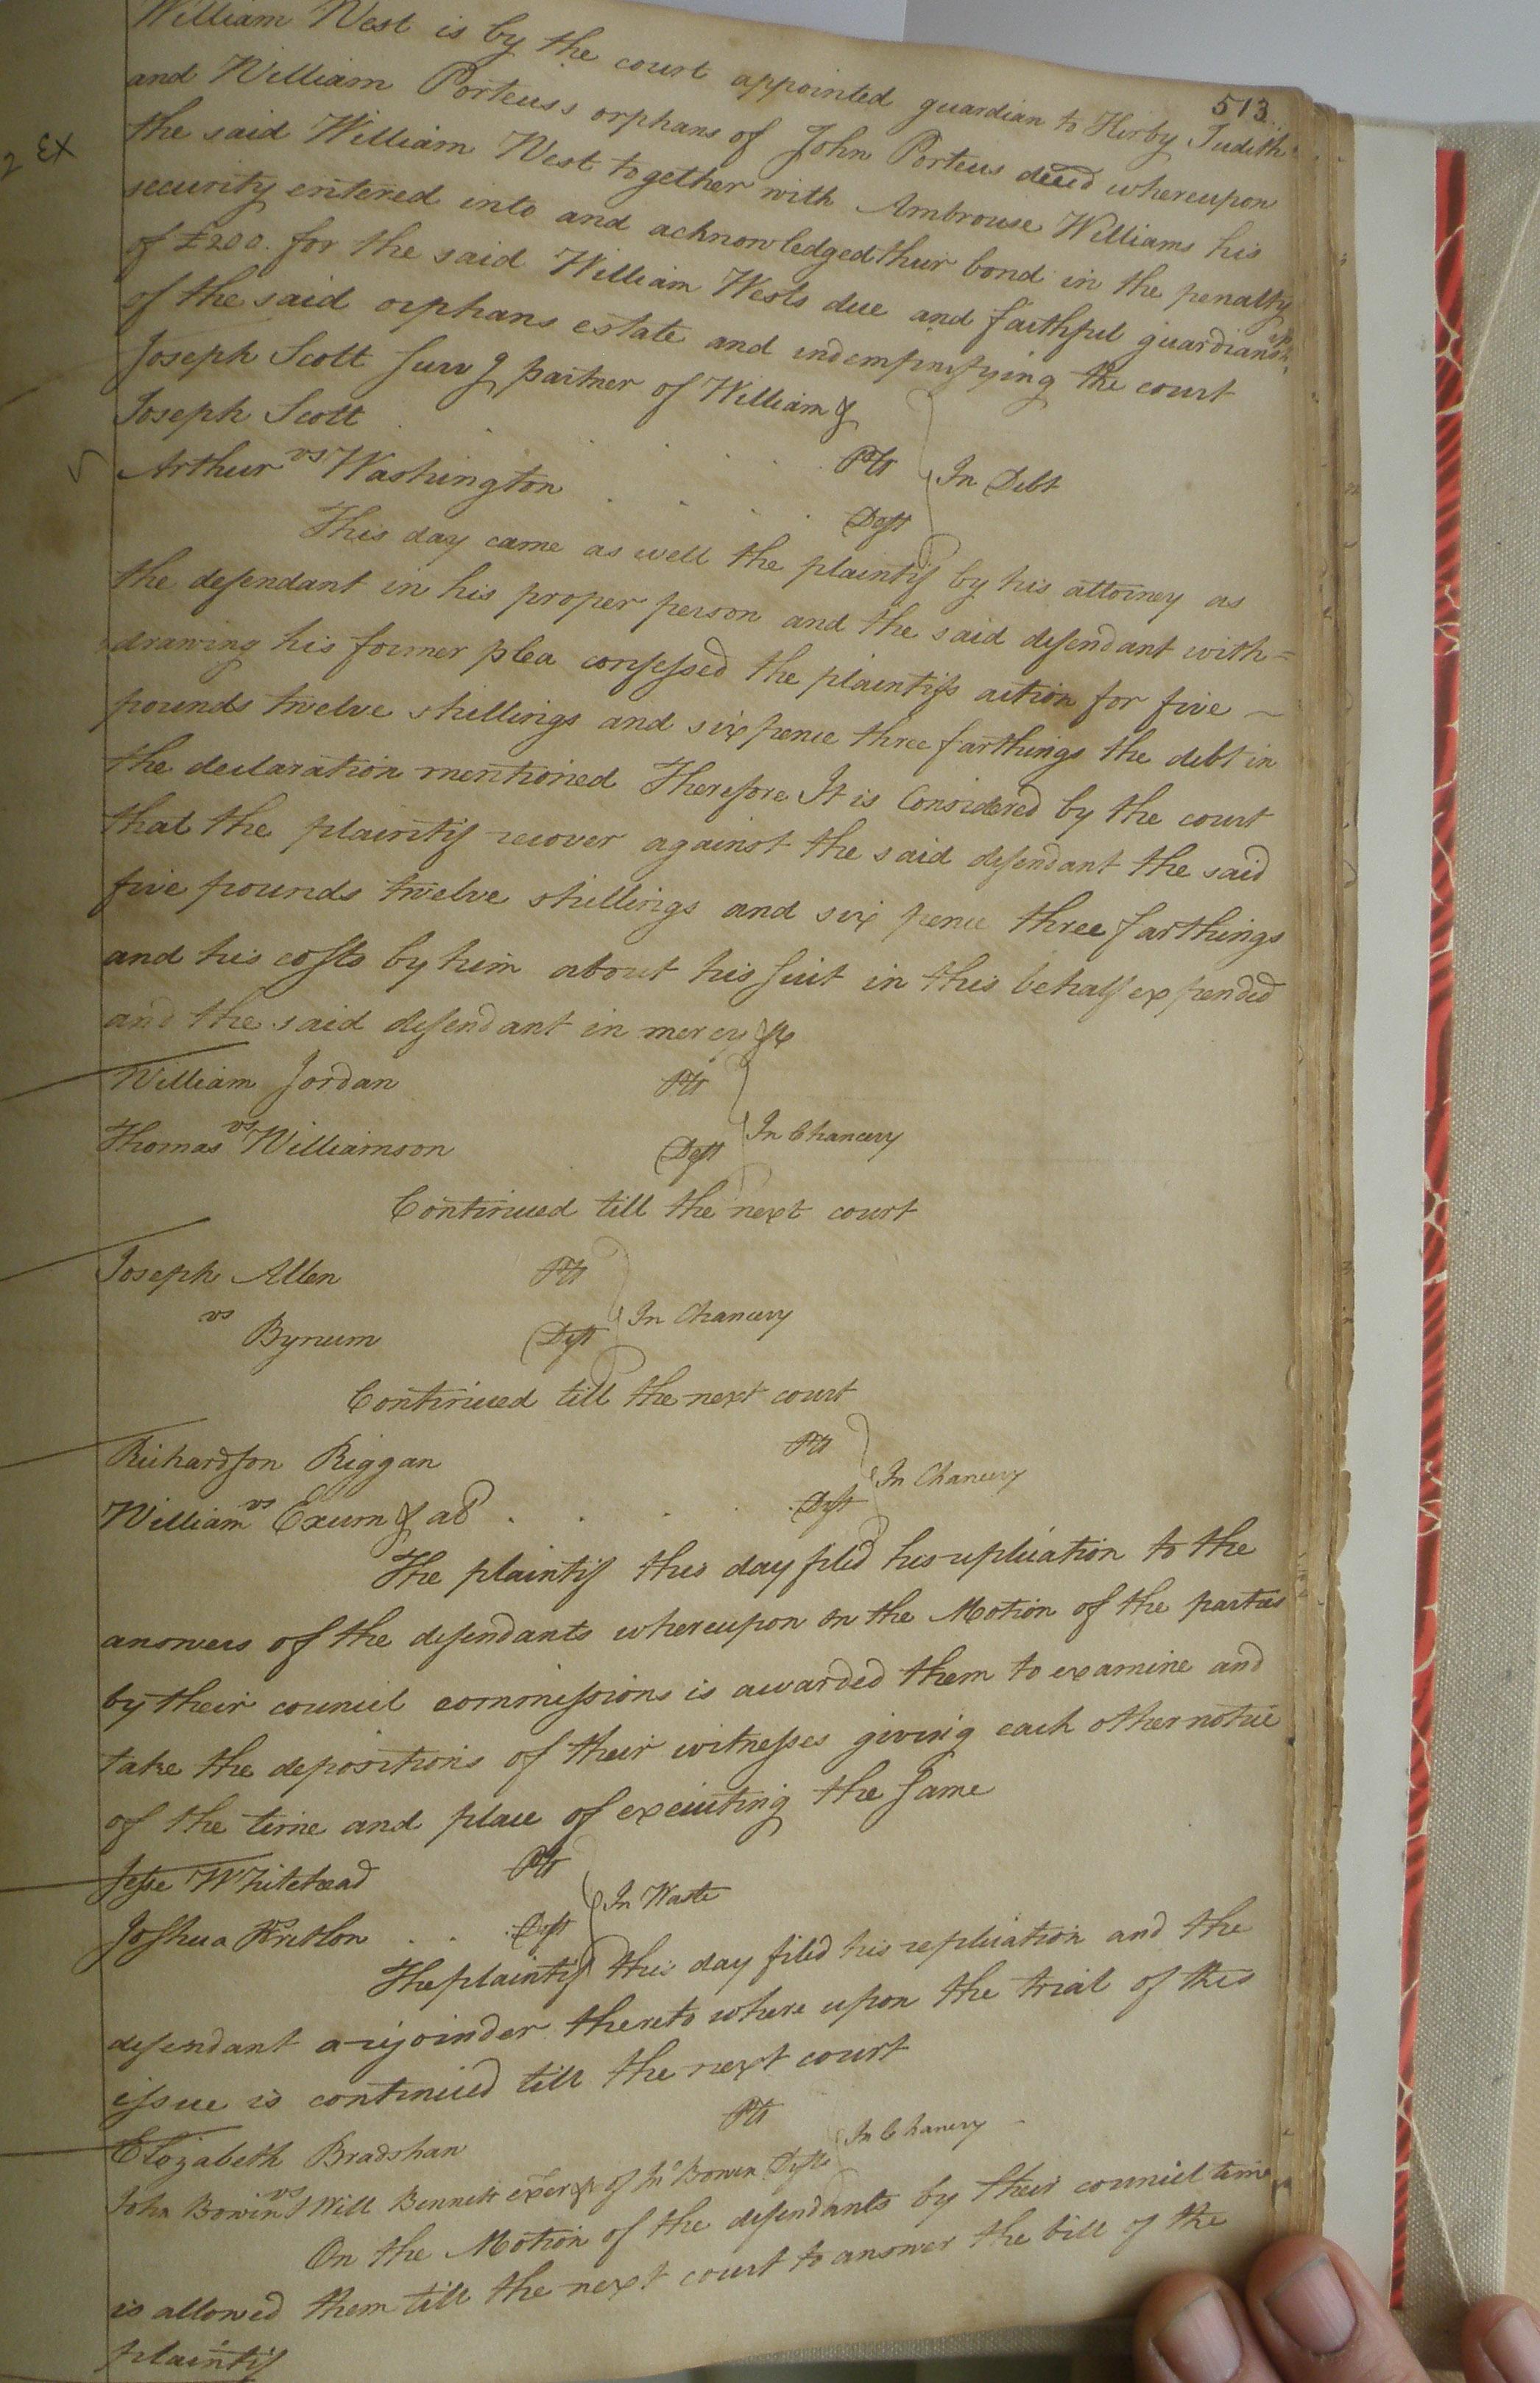 513
William West is by the court appointed guardian to Kirby Judith
and William Porteus's orphans of John Porteus deced whereupon
the said William West together with Ambrouse Williams his
security entered into and acknowledged their bond in the penalty
of £200. for the said William Wests due and faithful guardianship
of the said orphans estate and indempnifying the court
2 Ex
Joseph Scott surv g partner of William &
Joseph Scott Plt
vs In Debt
Arthur Washington Deft
This day came as well the plaintif by his attorney as
the defendant in his proper person and the said defendant with=
drawing his former plea confessed the plaintifs action for five
pounds twelve shillings and six pence three farthings the debt in
the declaration mentioned Therefore It is Considered by the court
that the plaintif recover against the said defendant the said
five pounds twelve shillings and six pence three farthings
and his costs by him about his suit in this behalf expended
and the said defendant in mercy &c
William Jordan Plt
vs In Chancery
Thomas Williamson Deft
Continued till the next court
Joseph Allen Plt
vs In Chancery
Bynum Deft
Continued till the next court
Richardson Riggan Plt
vs In Chancery
William Exum & al Deft
The plaintif this day filed his replication to the
answers of the defendants whereupon on the Motion of the parties
by their councel commissions is awarded them to examine and
take the depositions of their witnesses giving each other notice
of the time and place of executing the same
Jesse Whitehead Plt
vs In Waste
Joshua Deft
The plaintif this day filed his replication and the
defendant a rejoinder thereto where upon the trial of this
issue is continued till the next court
Elizabeth Bradshaw Plt
vs In Chancery
John Bowin & Will Bennett exers of Bowen Defts
On the Motion of the defendants by their councel time
is allowed them till the next court to answer the bill of the
plaintif